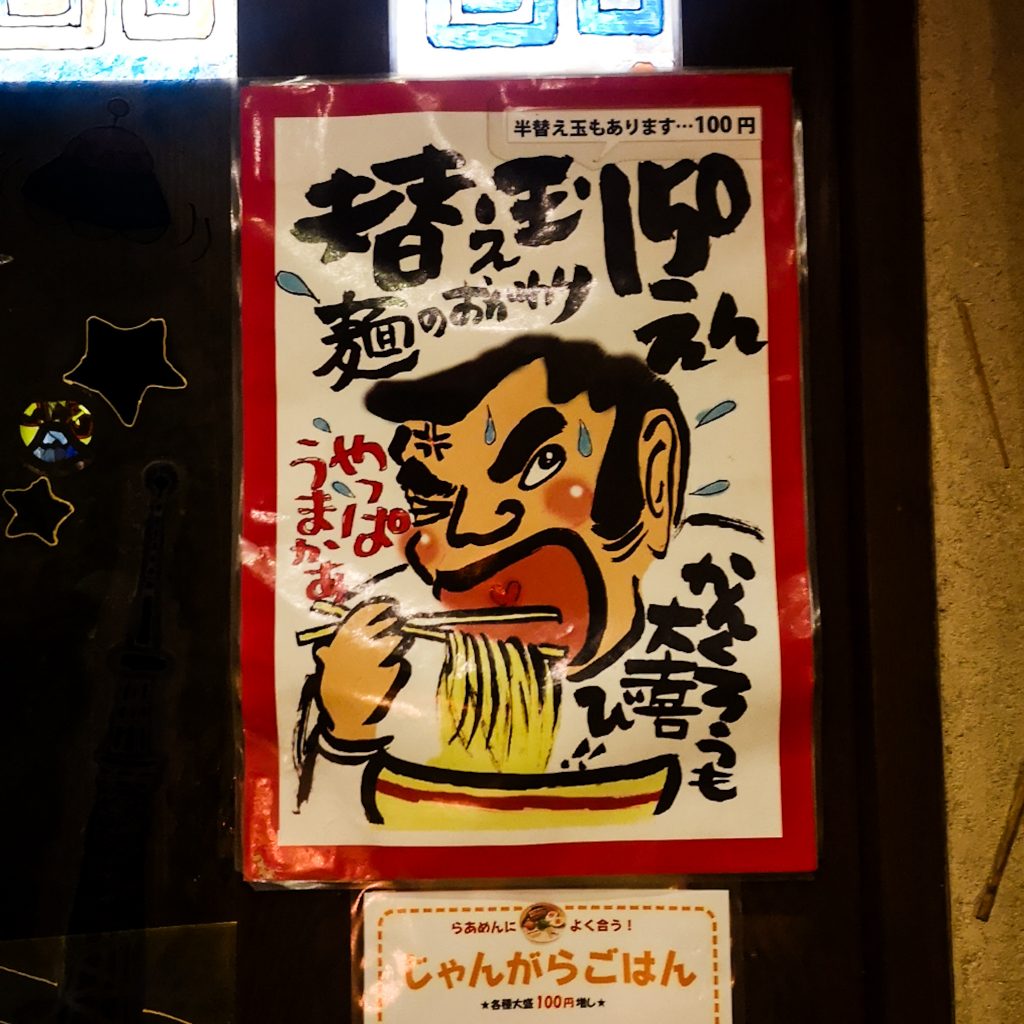 半替え玉もあります…100円
替え玉
150えん
麺のおかわり
やっぱ
うまかぁ
かえくろうも
大喜び!!
らあめんに よく合う!
じゃんがらごはん
★各種大盛100円増し★